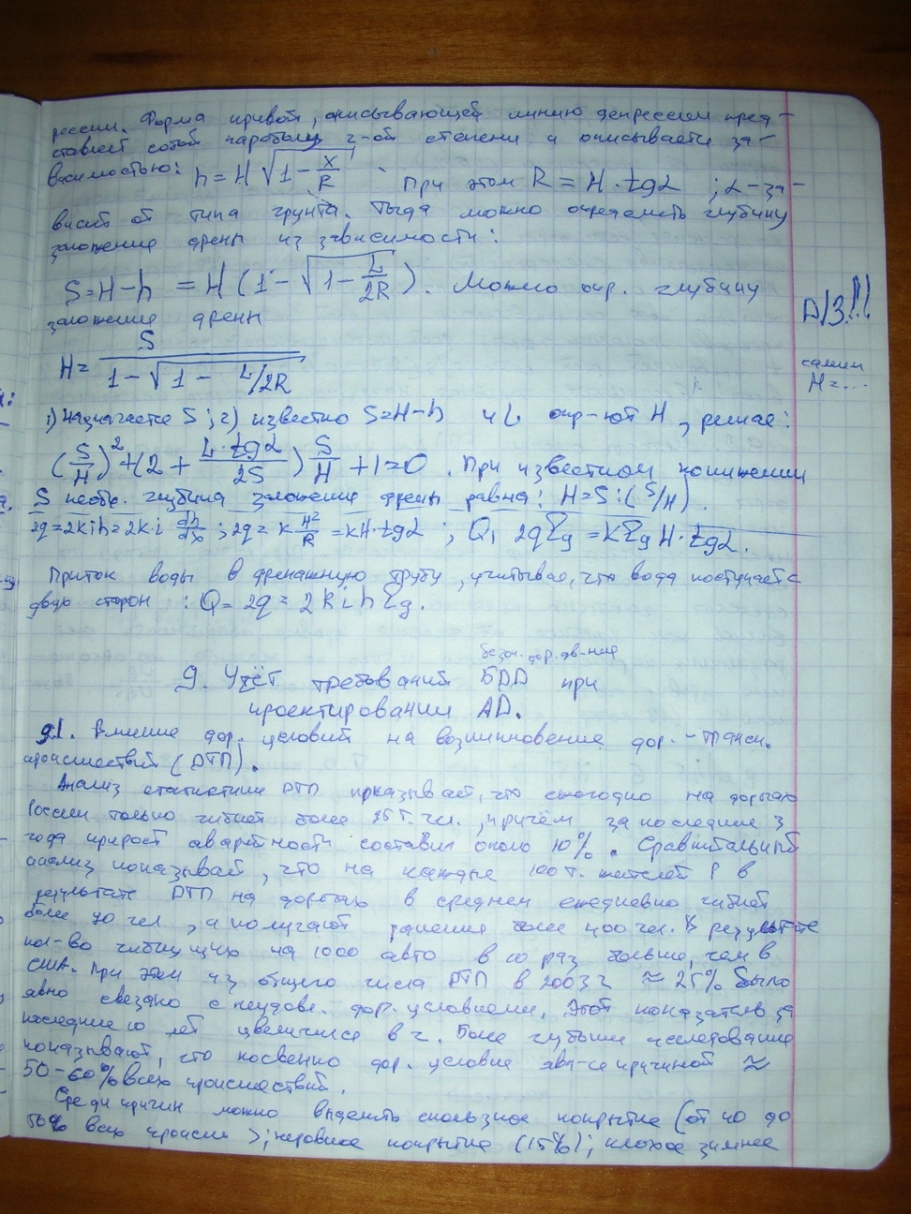 рессии. Форма кривой, описывающей линию депрессии пред-
ставляет собой параболу 2-ой степени и описывается за-
висимостью: h = H√(1 - x/R) . При этом R = H·tgα ; α - за-
висит от типа грунта. Тогда можно определить глубину
заложения дрены из зависимости:
S=H-h = H(1-√(1-L/2R)). Можно опр. глубину
заложения дрены
Д/З!!!
H= S/(1-√(1-L/2R))
самим
H=...
1) Назначается S; 2) известно S=H-h и L опр-ют H, решая:
(S/H)²+(2+ L·tgα/2S) S/H +1=0. При известном понижении
S необх. глубина заложения дрены равна: H=S:(S/H).
2q=2kih=2k·i dh/dx ; 2q= k H²/R =kH·tgα ; Q, 2qlg =klg H·tgα.
Приток воды в дренажную трубу, учитывая, что вода поступает с
двух сторон : Q= 2q= 2kih lg.
безоп. дор. дв-ния
9. Учёт требований БДД при
проектировании АД.
9.1. Влияние дор. условий на возникновение дор. - трансп.
происшествий (ДТП).
Анализ статистики ДТП показывает, что ежегодно на дорогах
России только гибнет более 35 т. чел., причём за последние 3
года прирост аварийности составил около 10%. Сравнительный
анализ показывает, что на каждые 100 т. жителей Р в
результате ДТП на дорогах в среднем ежедневно гибнет
более 70 чел, а получают ранения более 400 чел. В результате
кол-во гибнущих на 1000 авто в 10 раз больше, чем в
США. При этом из общего числа ДТП в 2003г ≈ 25% было
явно связано с неудовл. дор. условиями. Этот показатель за
последние 10 лет увеличился в 2. Более глубокие исследования
показывают, что косвенно дор. условие явл-ся причиной ≈
50-60% всех происшествий.
Среди причин можно выделить скользкое покрытие (от 40 до
50% всех происш.); неровное покрытие (15%); плохое зимнее